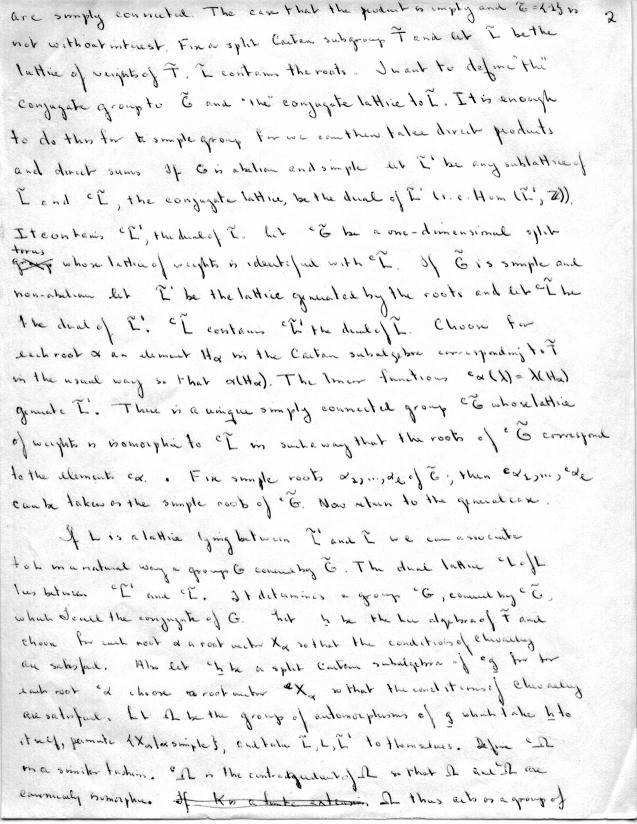 2
are simply connected. The case that the product is empty and G̃ = {1} is
not without interest. Fix a split Cartan subgroup T̃ and let L̃ be the
lattice of weights of T̃. L̃ contains the roots. I want to define "the"
conjugate group to G̃ and "the" conjugate lattice to L̃. It is enough
to do this for a simple group for we can then take direct products
and direct sums. If G̃ is abelian and simple let L̃' be any sublattice of
L̃ and ᶜL̃, the conjugate lattice, be the dual of L̃' (i.e. Hom (L̃', Z)).
It contains ᶜL̃', the dual of L̃. Let ᶜG̃ be a one-dimensional split
torus
whose lattice of weights is identified with ᶜL̃. If G̃ is simple and
non-abelian let L̃' be the lattice generated by the roots and let ᶜL̃ be
the dual of L̃'. ᶜL̃ contains ᶜL̃' the dual of L̃. Choose for
each root α an element Hα in the Cartan subalgebra corresponding to T̃
in the usual way so that α(Hα). The linear functions ᶜα(λ) = λ(Hα)
generate L̃'. There is a unique simply connected group ᶜG̃ whose lattice
of weights is isomorphic to ᶜL̃ in such a way that the roots of ᶜG̃ correspond
to the elements ᶜα. Fix simple roots α₁,...,αℓ of G̃; then ᶜα₁,...,ᶜαℓ
can be taken as the simple roots of ᶜG̃. Now return to the general case.
If L is a lattice lying between L̃' and L̃ we can associate
to L in a natural way a group G covered by G̃. The dual lattice ᶜL of L
lies between ᶜL̃' and ᶜL̃. It determines a group ᶜG, covered by ᶜG̃,
which I call the conjugate of G. Let h be the Lie algebra of T̃ and
choose for each root α a root vector Xα so that the conditions of Chevalley
are satisfied. Also let ᶜh be a split Cartan subalgebra of ᶜg for
each root ᶜα choose a root vector ᶜXα so that the conditions of Chevalley
are satisfied. Let Ω be the group of automorphisms of g which take h to
itself, permute {Xα | α simple}, and take L̃, L, L̃' to themselves. Define ᶜΩ
in a similar fashion. ᶜΩ is the contragredient of Ω so that Ω and ᶜΩ are
canonically isomorphic. If K is a finite extension Ω thus acts as a group of